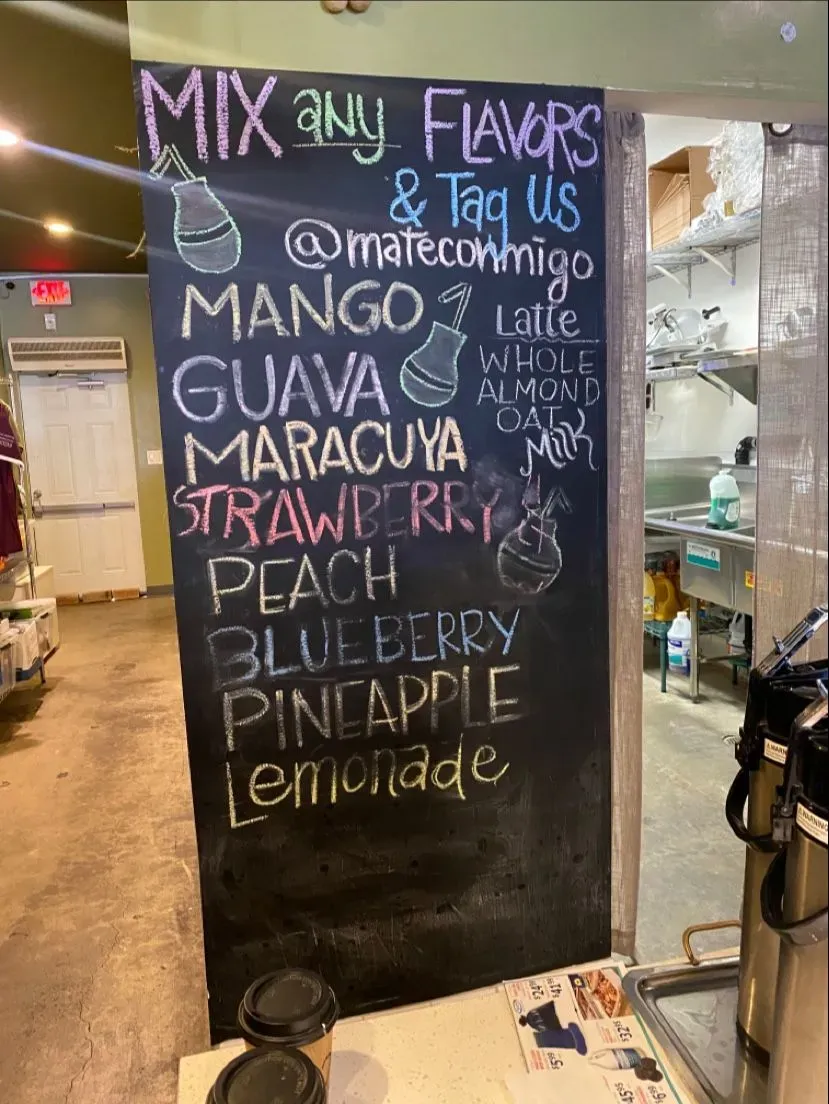 MIX any FLAVORS
& Tag US
@mateconmigo
MANGO
GUAVA
MARACUYA
STRAWBERRY
PEACH
BLUEBERRY
PINEAPPLE
Lemonade
Latte
WHOLE
ALMOND
OAT
Milk
EXIT
WARNING